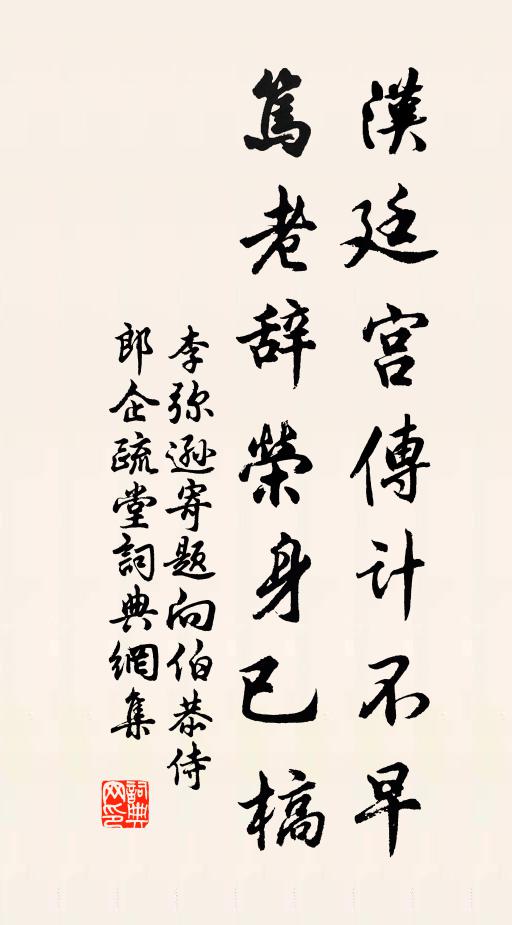 漢廷宮傅計不早
篤老辞榮身已槁
李弥遜寄题向伯恭侍
郎企疏堂詞典網集
詞典网印